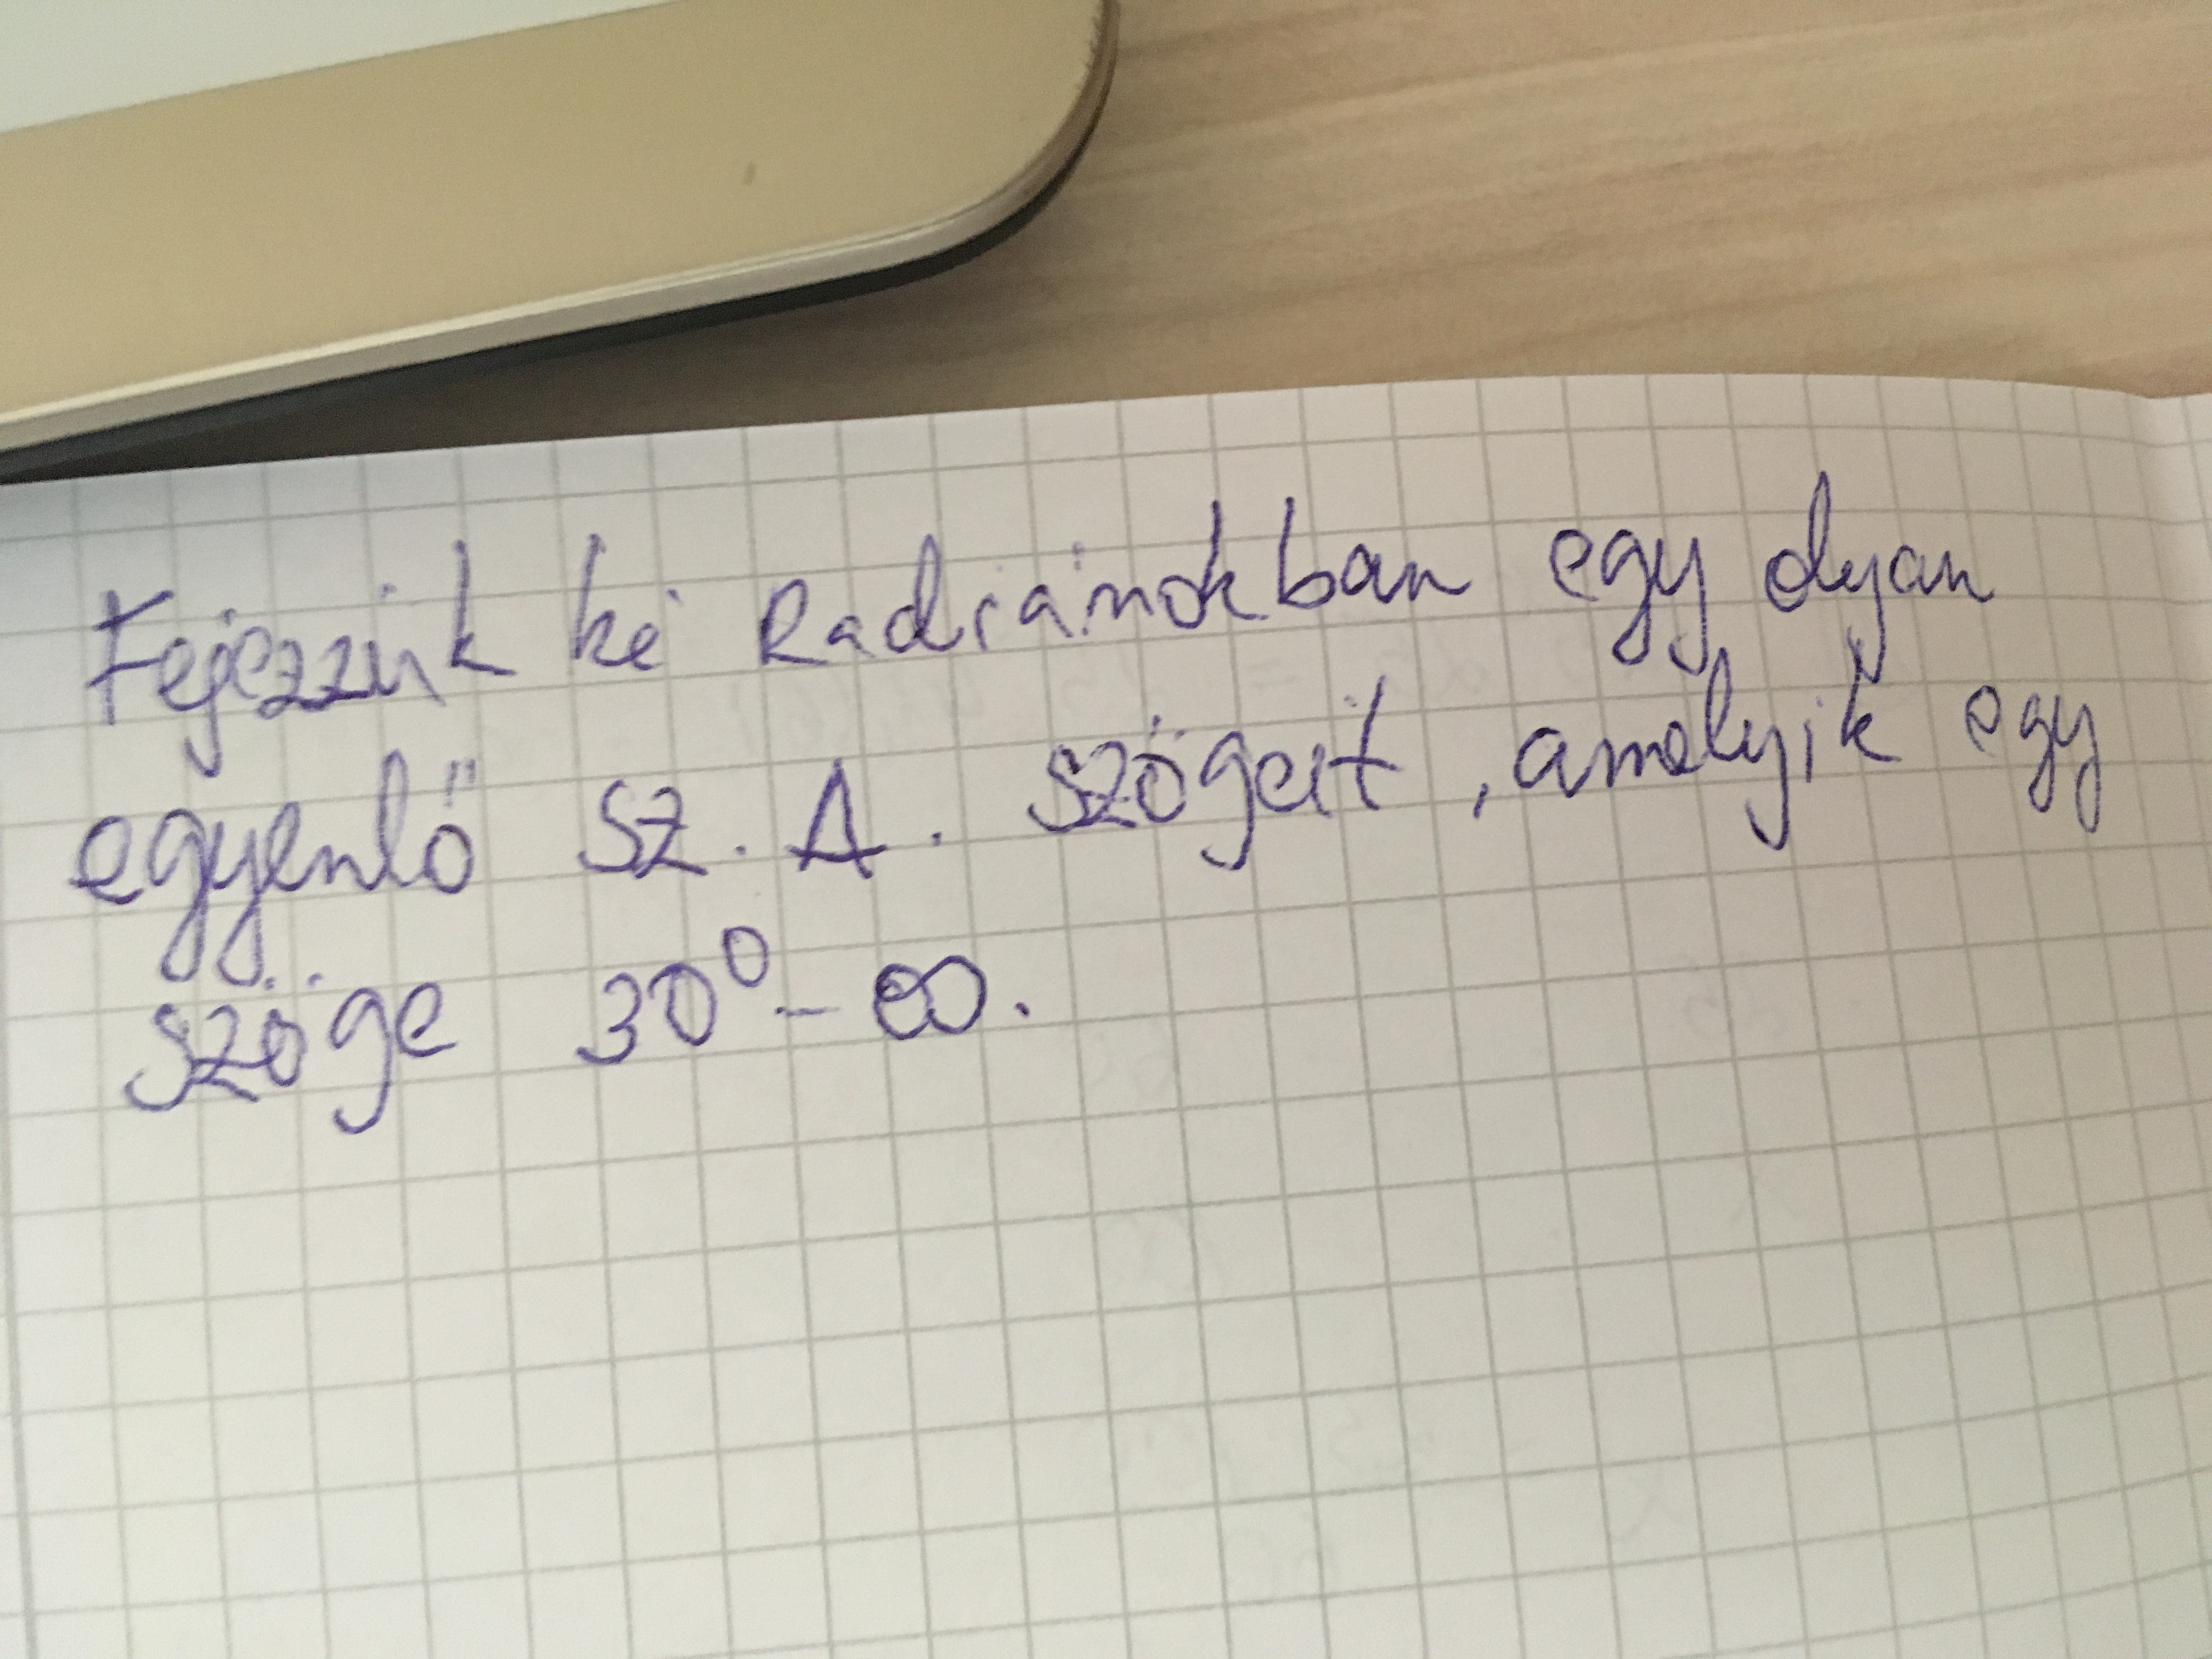 Fejezzük ki Radiánokban egy olyan
egyenlő sz. Δ. szögeit, amelyik egy
szöge 30⁰-os.